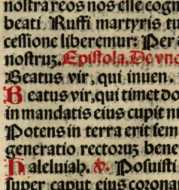 nostra reos nos elle cogn
beati. Ruffi martyris tu
cessione liberemur: Per
nostrum. Epistola. De vnc
Beatus vir, qui inuen.
Beatus vir, qui timet do
in mandatis eius cupit ni
Potens in terra erit sem
generatio rectorum bene
Haleluiah. ℣. Posuisti
super caput eius corona